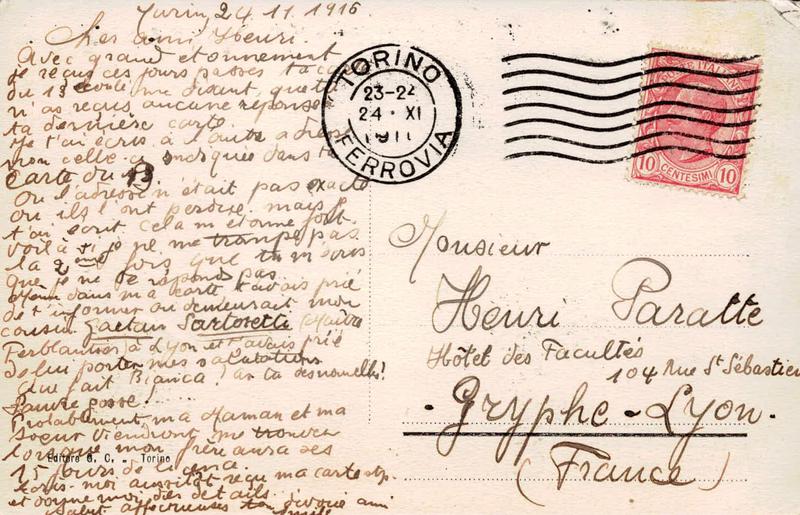 Turin, 24.11.1916
Cher ami Henri
Avec grand etonnement
je reçus ces jours passés ta c
du 13 écoulé, me disant, que t
n'as reçus aucune réponse
ta dernière carte.
Je t'ai écris à l'autre adre
mon celle-ci indiquée dans t
carte du 13
Ou l'adresse n'était pas exacte
ou ils l'ont perdue, mais je
t'ai écrit. Cela m'étonne fort.
Voilà si je ne me trompe pas
la 2ème fois que tu m'écris
que je ne te réponds pas.
dans ma carte t'avais prié
de t'informer ou demeurait mon
cousin Gaetan Sartoretti (Maître
Ferblantier) à Lyon et t'avais prié
de lui porter mes salutations
Que fait Bianca? as ta des nouvelles!
Pauvre gosse!
Probablement ma Maman et ma
soeur viendront me trouver
lorsque mon frère aura ses
15 jours de
Ecris-moi aussitôt reçu ma carte stp.
et donne moi des détails.
Salut affectueuses ton
Editore G. C. - Torino
TORINO
23-24
24 · XI
1911
FERROVIA
POSTE ITALIANE
10 CENTESIMI 10
Monsieur
Henri Paratte
Hôtel des Facultés
104 Rue St Sébastien
Gryphe-Lyon.
(France)